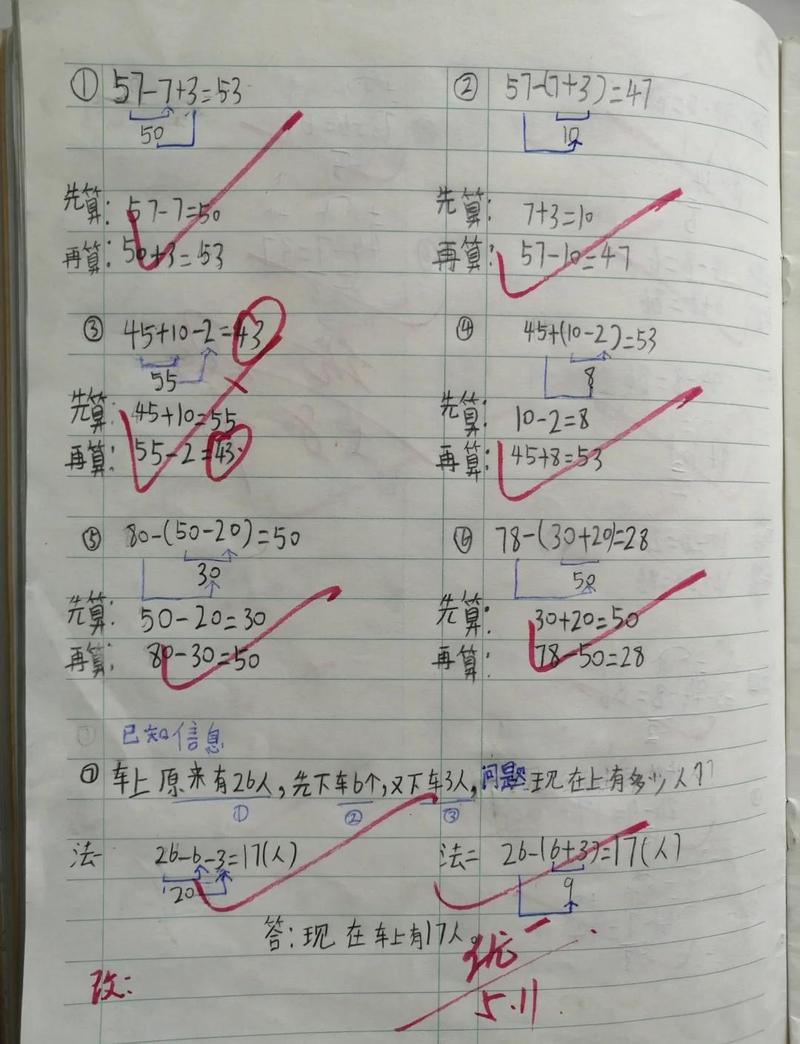 ① 57-7+3=53
50
先算: 57-7=50
再算: 50+3=53
② 57-(7+3)=47
10
先算: 7+3=10
再算: 57-10=47
③ 45+10-2=43
55
先算: 45+10=55
再算: 55-2=43
④ 45+(10-2)=53
8
先算: 10-2=8
再算: 45+8=53
⑤ 80-(50-20)=50
30
先算: 50-20=30
再算: 80-30=50
⑥ 78-(30+20)=28
50
先算: 30+20=50
再算: 78-50=28
已知信息
⑦ 车上原来有26人,先下车6个,又下车3人,问题现在上有多少人?
① ② ③
法一 26-6-3=17(人)
20
法二 26-(6+3)=17(人)
9
答:现在车上有17人。
优-
5.11
改: